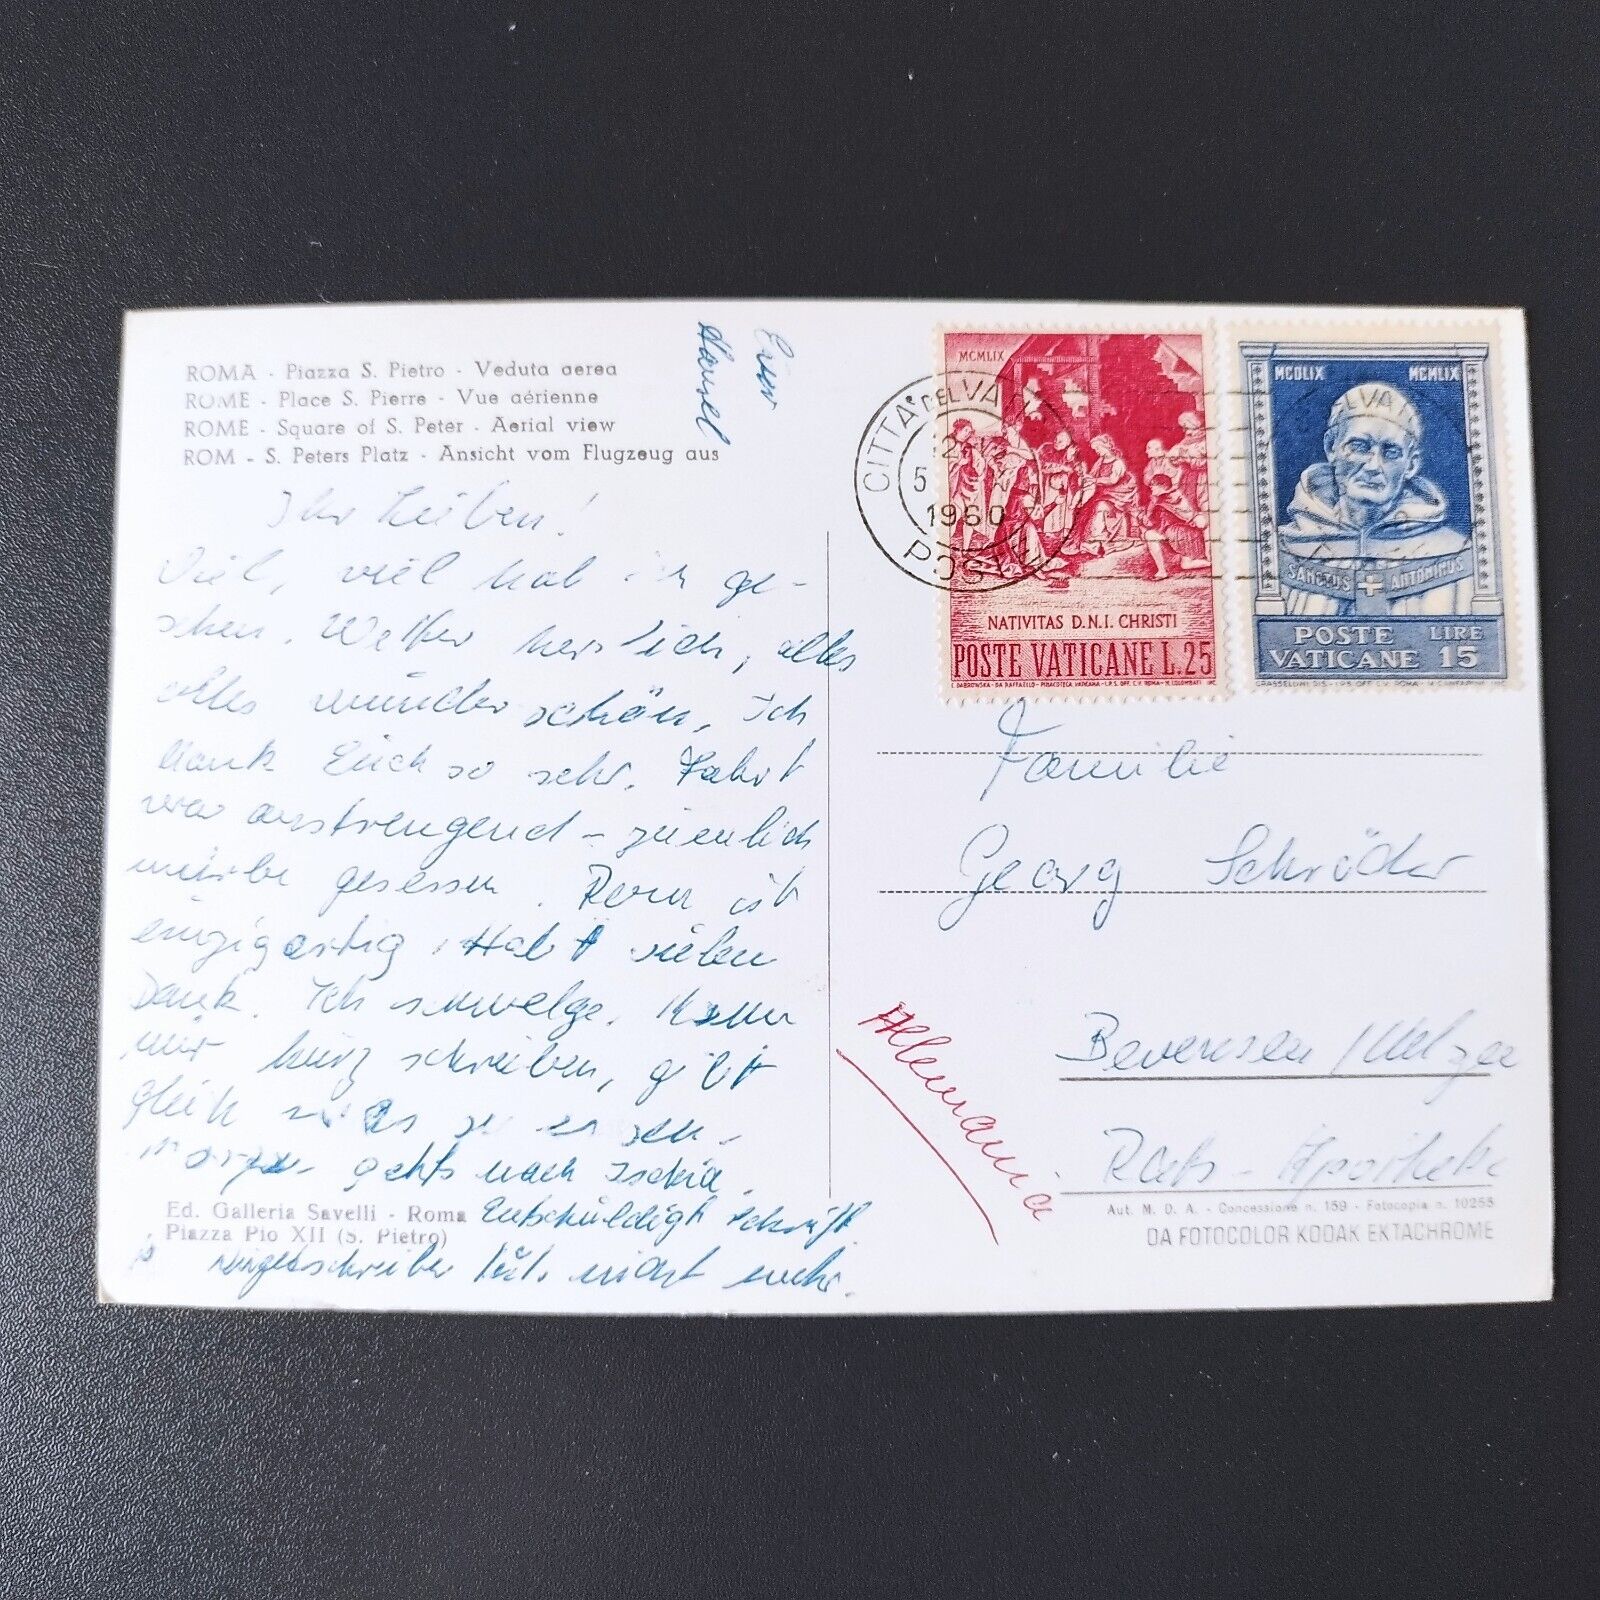 ROMA - Piazza S. Pietro - Veduta aerea
ROME - Place S. Pierre - Vue aérienne
ROME - Square of S. Peter - Aerial view
ROM - S. Peters Platz - Ansicht vom Flugzeug aus
Ihr Lieben!
Viel, viel hab ich ge-
sehen. Wetter herrlich, alles
alles wunderschön, Ich
dank Euch so sehr. Fahrt
war anstrengend - ziemlich
mürbe gesessen. Rom ist
einzigartig. Habt vielen
Dank. Ich schwelge. Kann
nur kurz schreiben, gibt
gleich was zu essen.
Morgen gehts nach Ischia.
Entschuldigt Schrift.
schreiber tut nicht mehr.
Euer
Hansel
Ed. Galleria Savelli - Roma
Piazza Pio XII (S. Pietro)
CITTA' DEL VA
12
5
1960
POSTE
MCMLIX
NATIVITAS D.N.I. CHRISTI
POSTE VATICANE L.25
MCDLIX MCMLIX
SANCTUS ANTONINUS
POSTE LIRE
VATICANE 15
Familie
Georg Schröder
Bevensen / Uelzen
Rats-Apotheke
Allemania
Aut. M. D. A. - Concessione n. 159 - Fotocopia n. 10255
DA FOTOCOLOR KODAK EKTACHROME